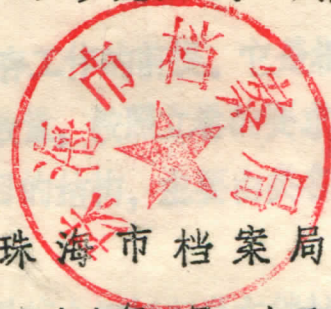 珠海市档案局
珠海市档案局